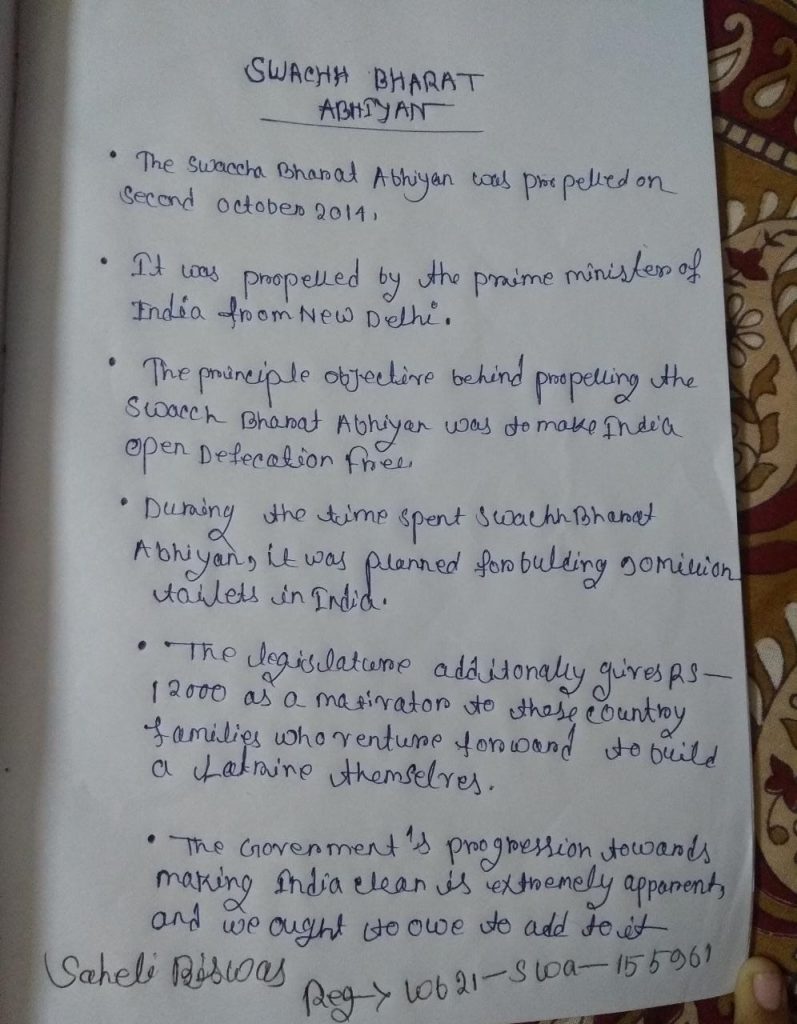 SWACHH BHARAT
ABHIYAN
• The Swaccha Bharat Abhiyan was propelled on
Second October 2014,
• It was propelled by the prime minister of
India from New Delhi.
• The principle objective behind propelling the
Swacch Bharat Abhiyan was to make India
Open Defecation free.
• During the time spent Swachh Bharat
Abhiyan, it was planned for bulding million
toilets in India.
• The legislature additonally gives RS—
12000 as a motivator to those country
families who venture forward to build
a Latrine themselves.
• The Government's progression towards
making India clean is extremely apparent,
and we ought to owe to add to it
Saheli Biswas
Reg→ WB21-SWA-155961